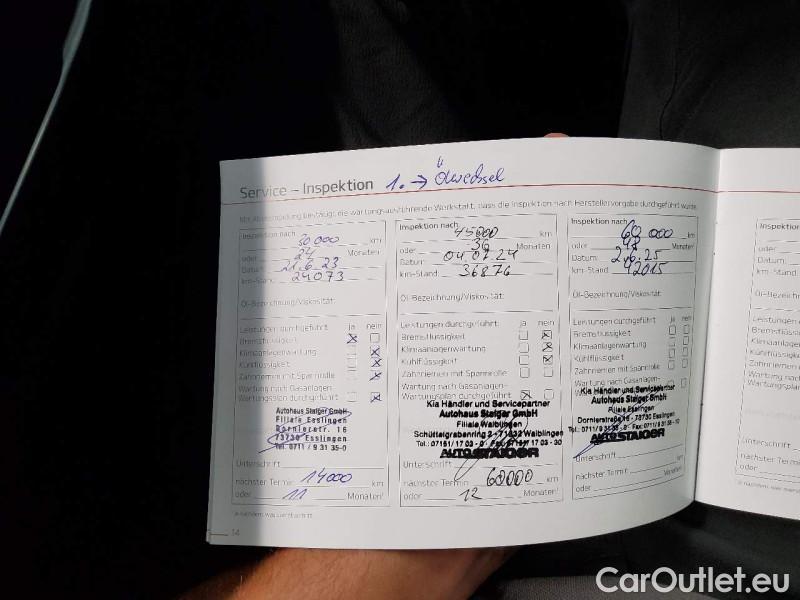 Service – Inspektion 1. → Ölwechsel
Mit Abstempelung bestätigt die wartungsausführende Werkstatt, dass die Inspektion nach Herstellervorgabe durchgeführt wurde.
Inspektion nach
30 000 km
oder 24 Monaten
Datum: 21.6.23
km-Stand: 24073
Öl-Bezeichnung/Viskosität:
Leistungen durchgeführt ja nein
Bremsflüssigkeit
Klimaanlagenwartung
Kühlflüssigkeit
Zahnriemen mit Spannrolle
Wartung nach Gasanlagen-
Wartungsplan durchgeführt
Autohaus Staiger GmbH
Filiale Esslingen
Dornierstr. 16
73730 Esslingen
Tel. 0711 / 9 31 35-0
Unterschrift
nächster Termin: 14000 km
oder 11 Monaten¹
14
Inspektion nach
45000 km
oder 36 Monaten
Datum: 04.07.24
km-Stand: 36876
Öl-Bezeichnung/Viskosität:
Leistungen durchgeführt ja nein
Bremsflüssigkeit
Klimaanlagenwartung
Kühlflüssigkeit
Zahnriemen mit Spannrolle
Wartung nach Gasanlagen-
Wartungsplan durchgeführt
Kia Händler und Servicepartner
Autohaus Staiger GmbH
Filiale Waiblingen
Schüttelgrabenring 2 - 71332 Waiblingen
AUTO STAIGER
Unterschrift
nächster Termin: 60000 km
oder 12 Monaten¹
Inspektion nach
60 000 km
oder 48 Monaten
Datum: 2.6.25
km-Stand: 42015
Öl-Bezeichnung/Viskosität:
Leistungen durchgeführt ja nein
Bremsflüssigkeit
Klimaanlagenwartung
Kühlflüssigkeit
Zahnriemen mit Spannrolle
Wartung nach Gasanlagen-
Kia Händler und Servicepartner
Autohaus Staiger GmbH
Filiale Esslingen
Dornierstraße 16 - 73730 Esslingen
AUTO STAIGER
Unterschrift
nächster Termin: km
oder Monaten¹
CarOutlet.eu